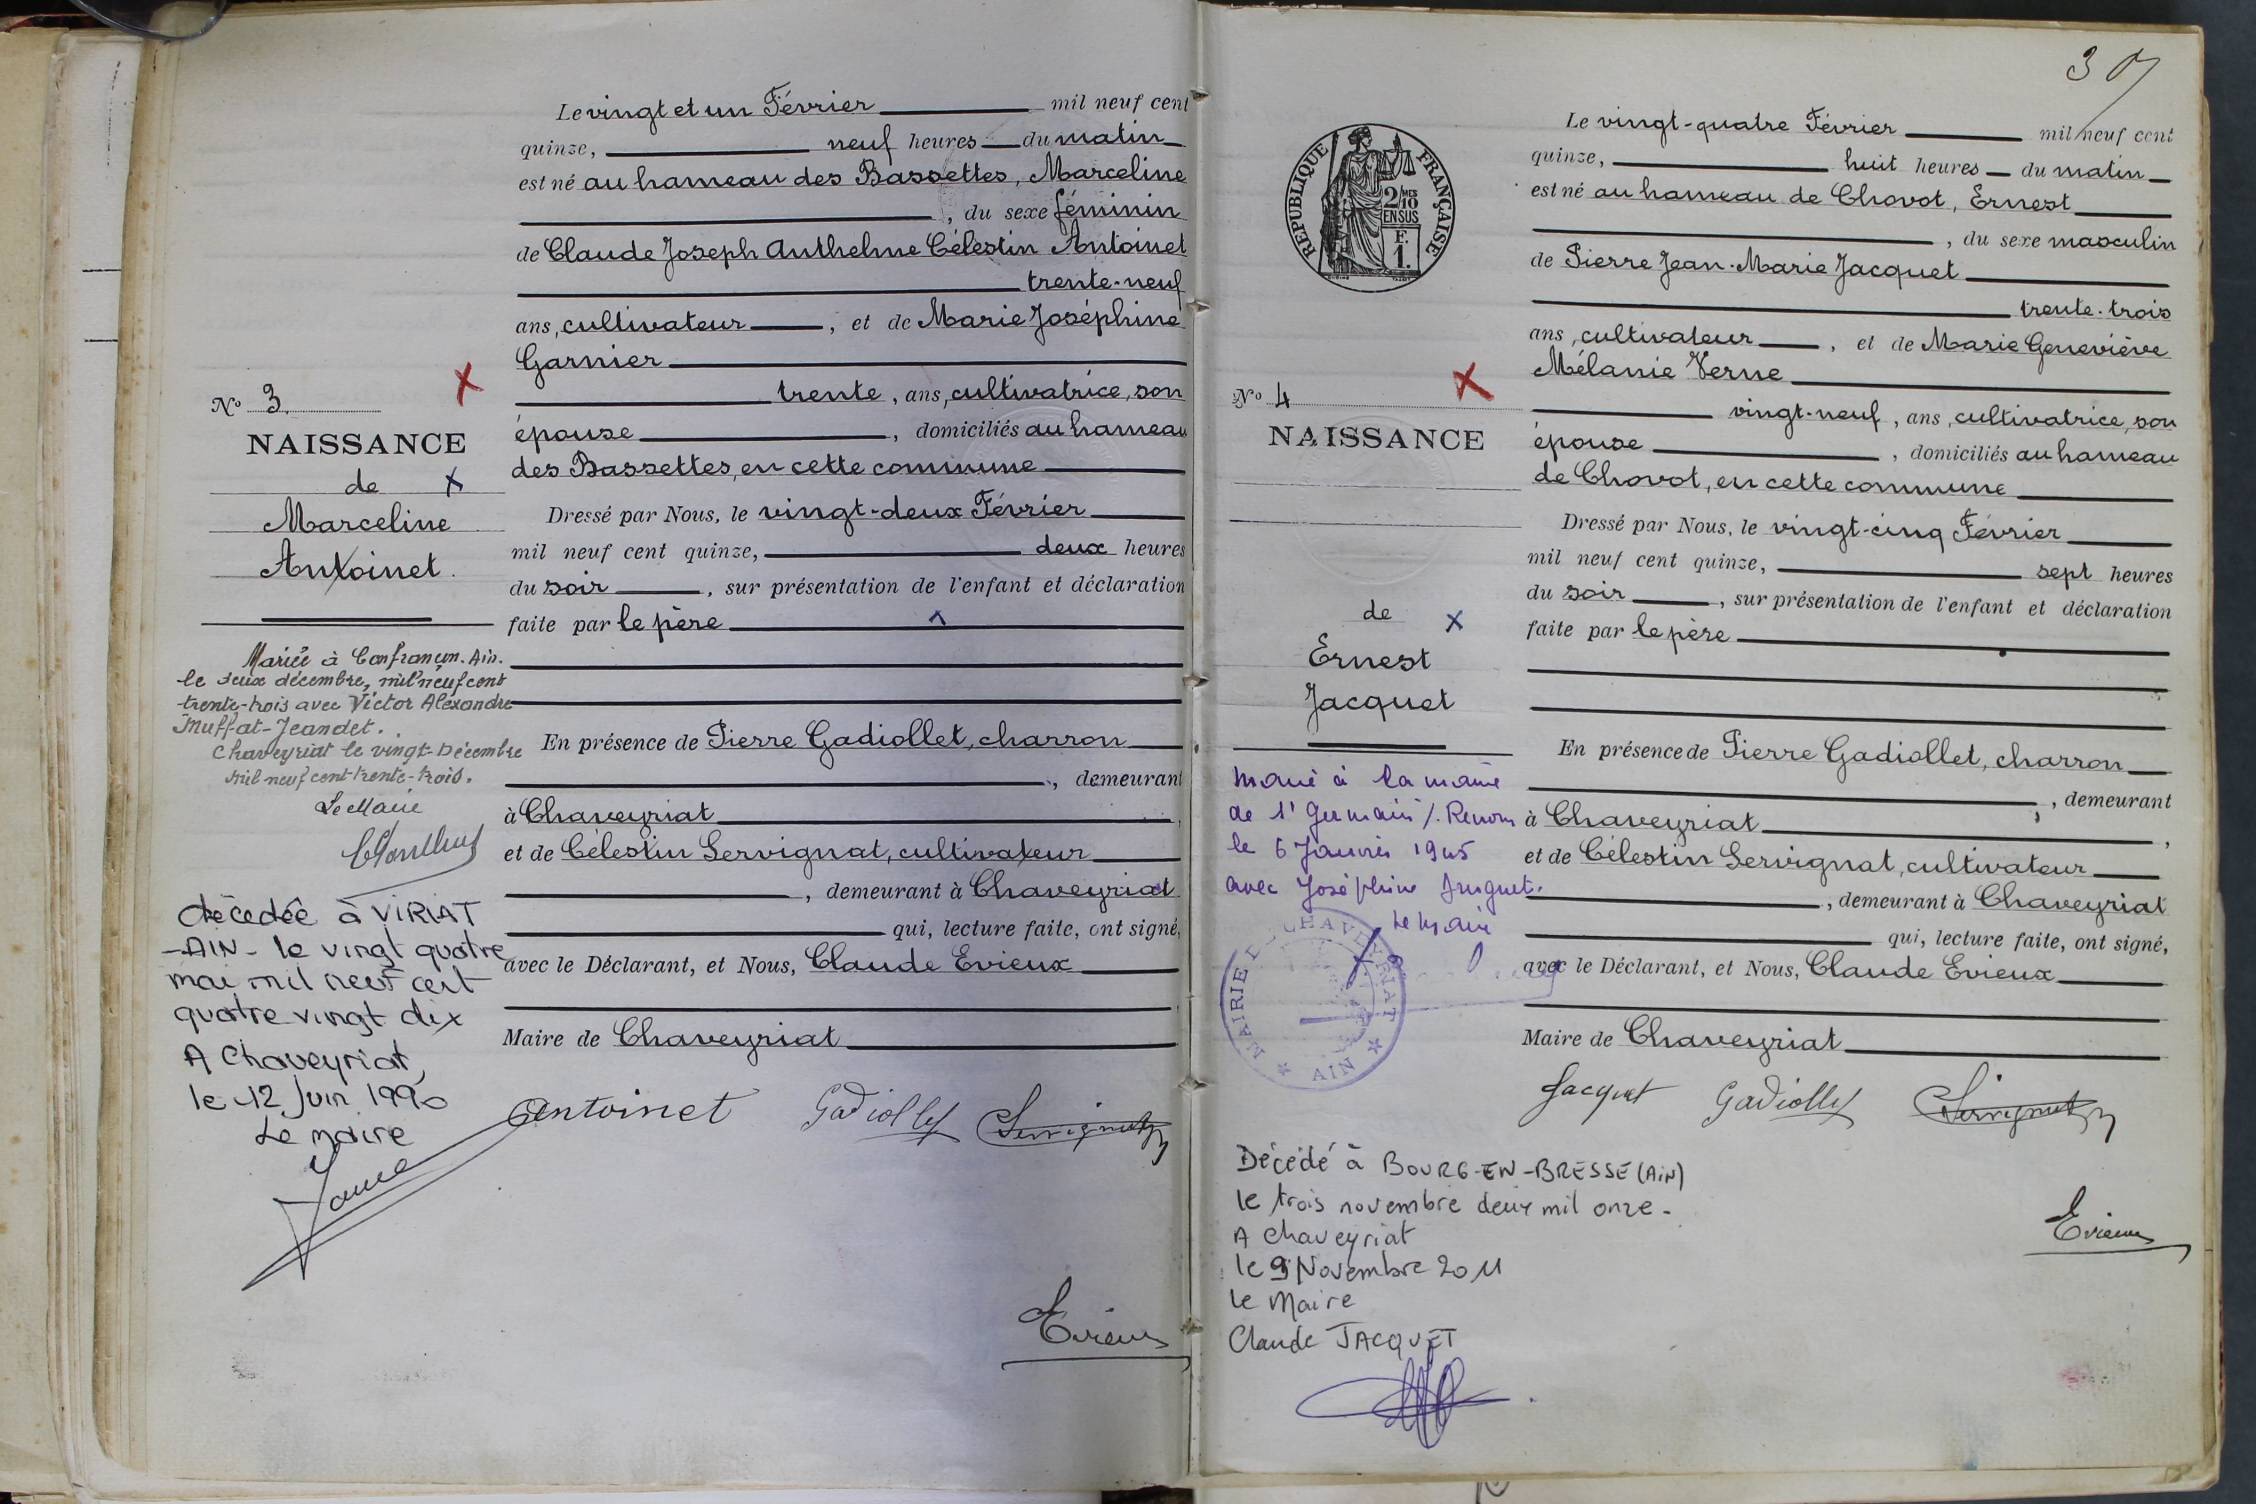 Le vingt et un Février mil neuf cent
quinze, neuf heures du matin
est né au hameau des Bassettes, Marceline
, du sexe féminin
de Claude Joseph Anthelme Célestin Antoinet
trente-neuf
ans, cultivateur, et de Marie Joséphine
Garnier
trente, ans, cultivatrice, son
épouse, domiciliés au hameau
des Bassettes, en cette commune
Dressé par Nous, le vingt-deux Février
mil neuf cent quinze, deux heures
du soir, sur présentation de l'enfant et déclaration
faite par le père
En présence de Pierre Gadiollet, charron
, demeurant
à Chaveyriat
et de Célestin Servignat, cultivateur
, demeurant à Chaveyriat
qui, lecture faite, ont signé,
avec le Déclarant, et Nous, Claude Evieux
Maire de Chaveyriat
Antoinet Gadiollet Servignat
Evieux
No 3.
NAISSANCE
de
Marceline
Antoinet.
Mariée à Confrançon. Ain.
le deux décembre, mil neuf cent
trente-trois avec Victor Alexandre
Muffat-Jeandet.
Chaveyriat le vingt-Décembre
mil neuf cent trente-trois.
Le Maire
décédée à VIRIAT
-AIN- le vingt quatre
mai mil neuf cent
quatre vingt dix
A Chaveyriat,
le 12 Juin 1990
Le maire
30
RÉPUBLIQUE FRANÇAISE
2/10 MES
EN SUS
F.
1.
Le vingt-quatre Février mil neuf cent
quinze, huit heures du matin
est né au hameau de Chovot, Ernest
, du sexe masculin
de Pierre Jean-Marie Jacquet
trente-trois
ans, cultivateur, et de Marie Geneviève
Mélanie Verne
vingt-neuf, ans, cultivatrice, son
épouse, domiciliés au hameau
de Chovot, en cette commune
Dressé par Nous, le vingt-cinq Février
mil neuf cent quinze, sept heures
du soir, sur présentation de l'enfant et déclaration
faite par le père
En présence de Pierre Gadiollet, charron
, demeurant
à Chaveyriat,
et de Célestin Servignat, cultivateur
, demeurant à Chaveyriat
qui, lecture faite, ont signé,
avec le Déclarant, et Nous, Claude Evieux
Maire de Chaveyriat
Jacquet Gadiollet Servignat
Evieux
No 4
NAISSANCE
de
Ernest
Jacquet
Marié à la mairie
de St Germain s/. Renom
le 6 Janvier 1945
avec Joséphine
Le Maire
MAIRIE DE CHAVEYRIAT
* AIN *
Décédé à BOURG-EN-BRESSE (AIN)
le trois novembre deux mil onze-
A Chaveyriat
le 9 Novembre 2011
le Maire
Claude JACQUET